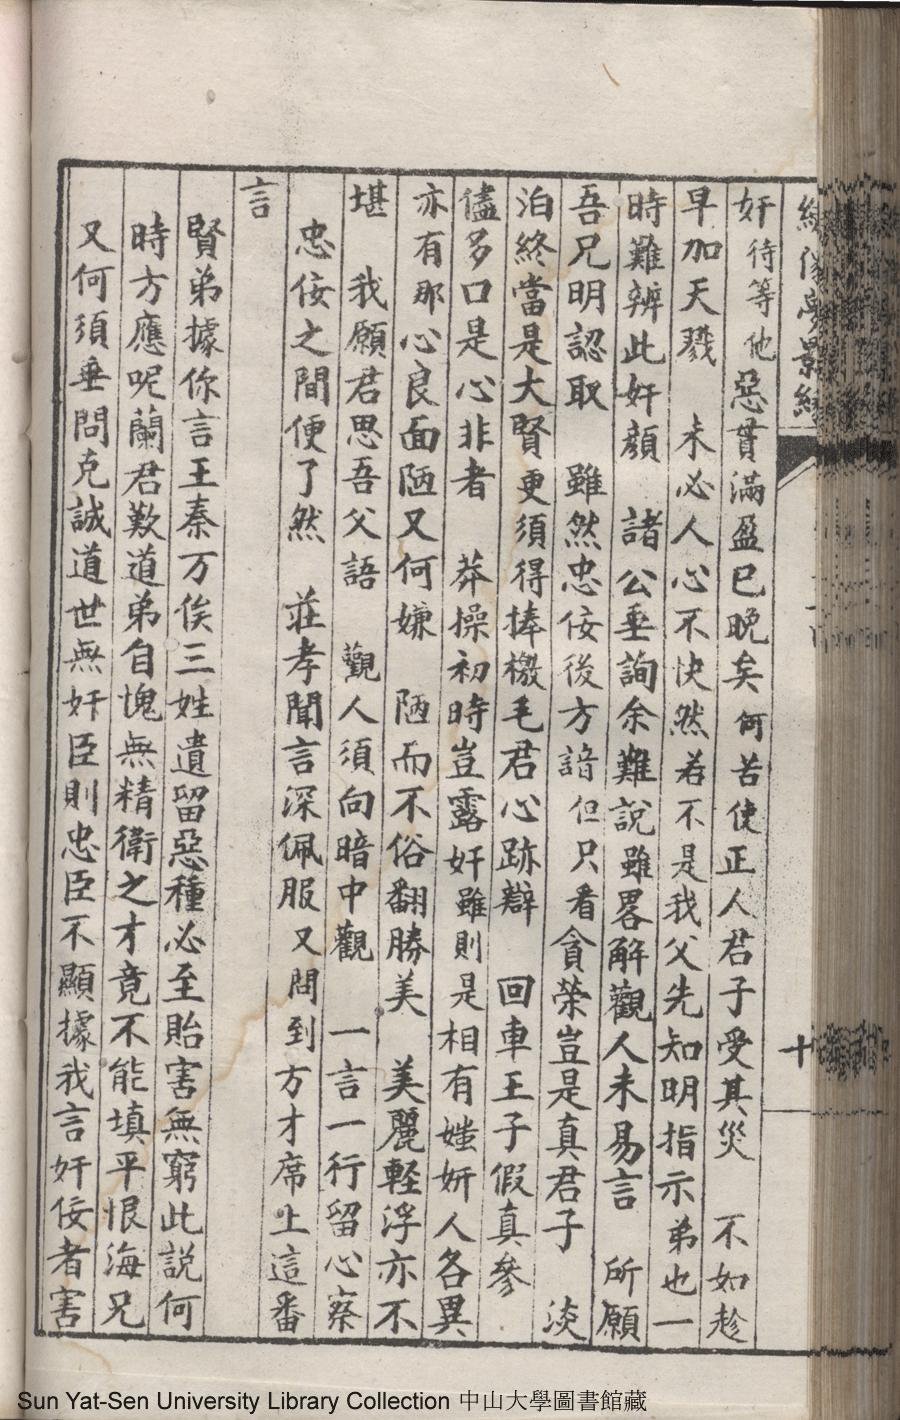 奸待等他惡貫滿盈已晚矣何苦使正人君子受其災 不如趁
早加天戮 未必人心不快然若不是我父先知明指示弟也一
時難辨此奸顏 諸公垂詢余難說雖畧解觀人未易言 所願
吾兄明認取 雖然忠佞後方諳但只看貪榮豈是真君子 淡
泊終當是大賢更須得捧檄毛君心跡辯 回車王子假真參
儘多口是心非者 莽操初時豈露奸雖則是相有媸妍人各異
亦有那心良面陋又何嫌 陋而不俗翻勝美 美麗輕浮亦不
堪 我願君思吾父語 觀人須向暗中觀 一言一行留心察
忠佞之間便了然 莊孝聞言深佩服又問到方才席上這番
言
賢弟據你言王秦万俟三姓遺留惡種必至貽害無窮此説何
時方應呢蘭君歎道弟自愧無精衛之才竟不能填平恨海兄
又何須垂問克誠道世無奸臣則忠臣不顯據我言奸佞者害
十
Sun Yat-Sen University Library Collection 中山大學圖書館藏